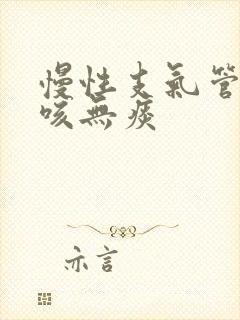 慢性支氣管
咳無痰
亦言